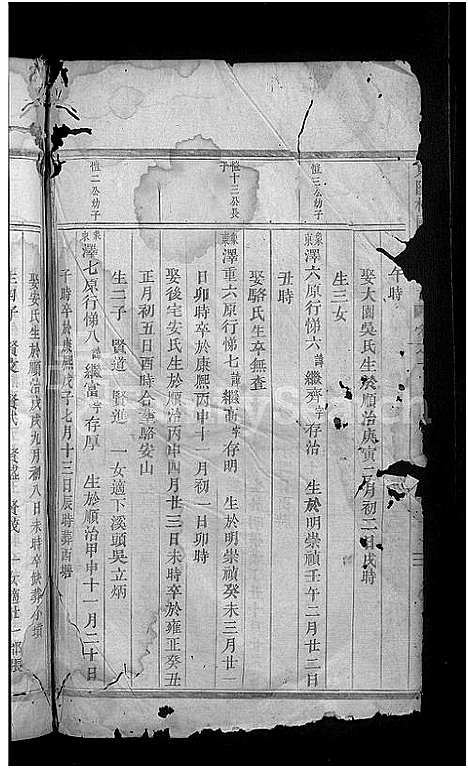 午時
娶大園吳氏生於順治庚寅二月初二日戌時
生三女
愷三公幼子
象泉 澤六原行悌六諱繼齊字存治 生於明崇禎壬午二月廿二日
丑時
娶駱氏生卒無查
愷十三公長子
象泉 澤重六原行悌七諱繼高字存明 生於明崇禎癸未三月廿
日卯時卒於康熙丙申十一月初一日卯時
娶後宅安氏生於順治丙申四月廿三日未時卒於雍正癸丑
正月初五日酉時合塟駱安山
生二子 賢道 賢進 一女適下溪頭吳立炳
愷二公幼子
象泉 澤七原行悌八諱繼富字存厚 生於順治甲申十一月二十日
子時卒於康熙戊子七月十三日辰時葬西塘
娶安氏生於順治戊戌九月初八日未時卒缺葬
生四子 賢茂 一女適